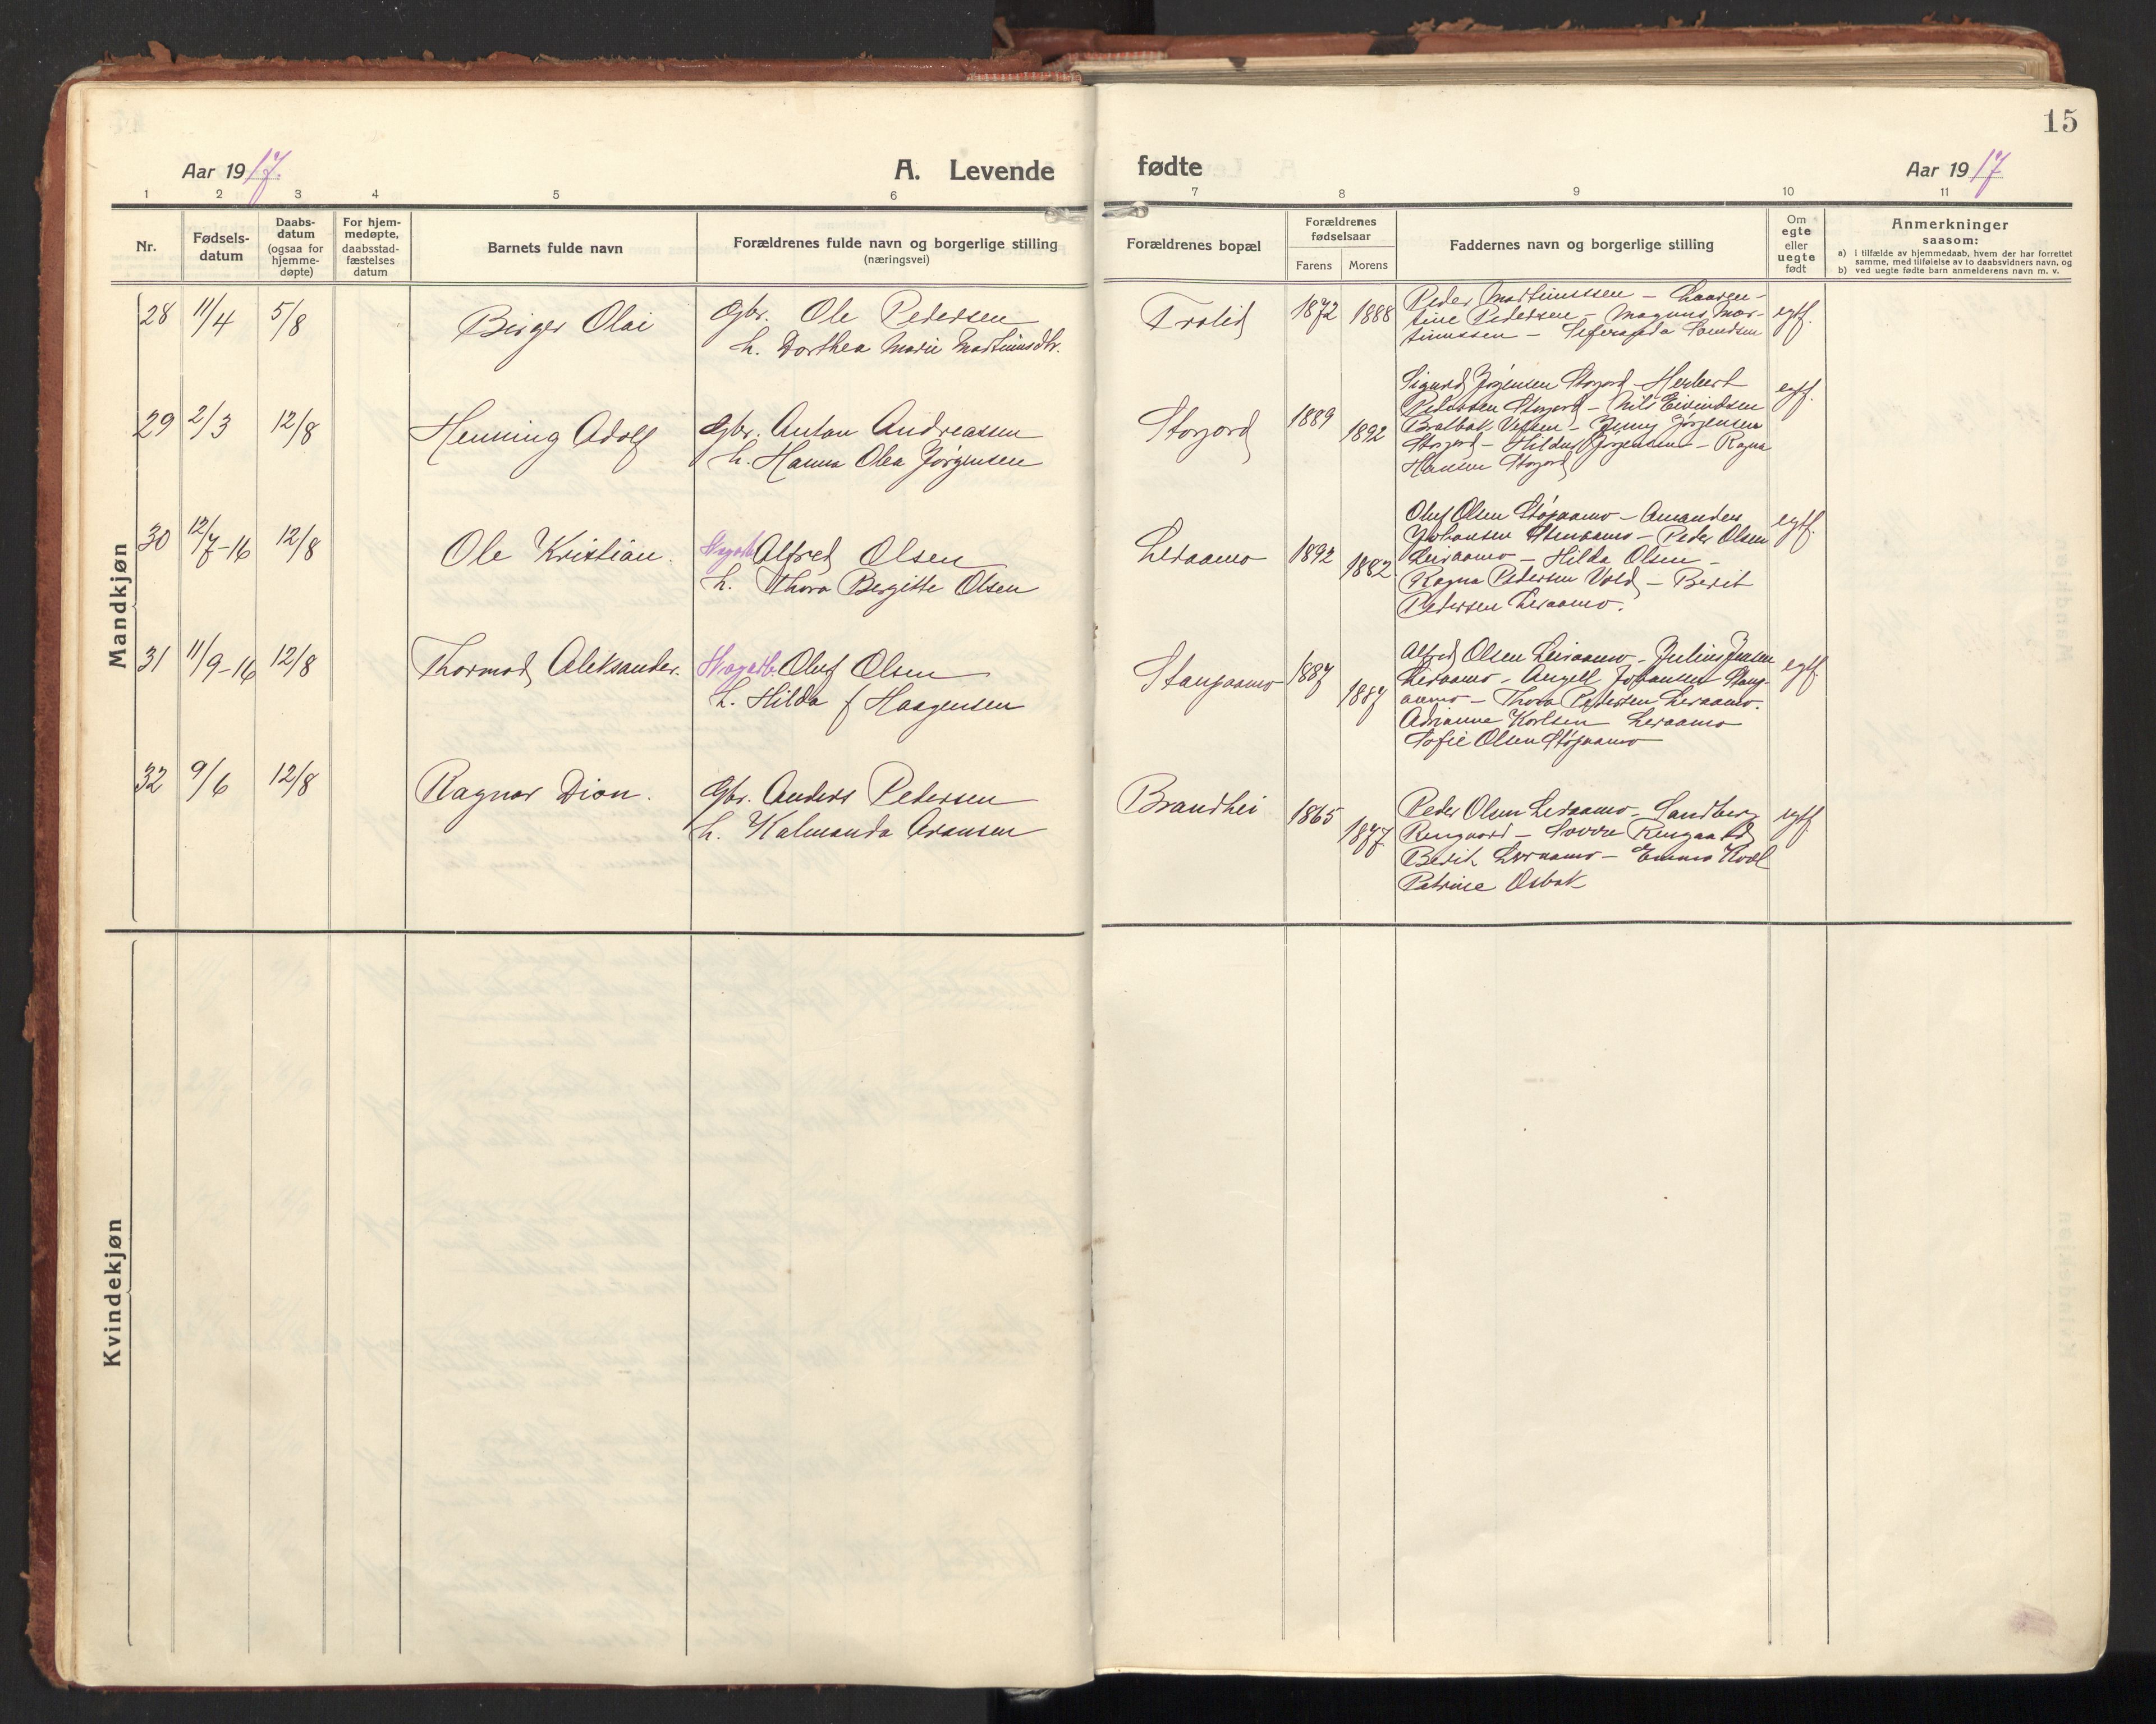 15
Aar 1917.
A. Levende
fødte
Aar 1917
1 2 3 4 5 6
7 8 9 10 11
Nr.
Fødsels-
datum
Daabs-
datum
(ogsaa for
hjemme-
døpte)
For hjem-
medøpte,
daabsstad-
fæstelses
datum
Barnets fulde navn
Forældrenes fulde navn og borgerlige stilling
(næringsvei)
Forældrenes bopæl
Forældrenes
fødselsaar
Farens Morens
Faddernes navn og borgerlige stilling
Om
egte
eller
uegte
født
Anmerkninger
saasom:
a) i tilfælde av hjemmedaab, hvem der har forrettet
samme, med tilføielse av to daabsvidners navn, og
b) ved uegte fødte barn anmelderens navn m. v.
Mandkjøn
28 11/4 5/8 Birger Olai
Gbr. Ole Pedersen
h. Dorthea Marie Martinusdtr.
Trolid 1872 1888
Peder Martinussen – Lauren-
tine Pedersen – Magnus Mar-
tinussen –
egtf.
29 2/3 12/8 Henning Adolf
Gbr. Anton Andreassen
h. Hanna Olea Jørgensen
Storjord 1889 1892
Sigurd Jørgensen Storjord – Herbert
Pedersen Storjord – Nils Eivindsen
Jenny Jørgensen
Storjord – Hildur Jørgensen – Ragna
Hansen Storjord
egtf.
30 12/7-16 12/8 Ole Kristian.
Alfred Olsen
h. Thora Bergitte Olsen
Leraamo 1892 1882.
Oluf Olsen
Johansen – Peder Olsen
Leiraamo – Hilda Olsen –
Ragna Pedersen Vold – Berit
Pedersen Leraamo.
egtf.
31 11/9-16 12/8 Thormod Aleksander.
Oluf Olsen
h. Hilda f Haagensen
1887 1887
Alfred Olsen Leiraamo – Julius Jensen
Leraamo – Angell Johansen
aamo – Thora Pedersen Leraamo.
Adrianne Karlsen Leraamo
Sofie Olsen
egtf.
32 9/6 12/8 Ragnar Dion.
Gbr. Anders Pedersen
h. Kalmanda Aransen
Brandhei 1865 1877
Peder Olsen Leraamo – Sandberg
Rengaard – Rengaard
Berit Leraamo – Emma Kvæl
Petrine Osbak
egtf.
Kvindekjøn